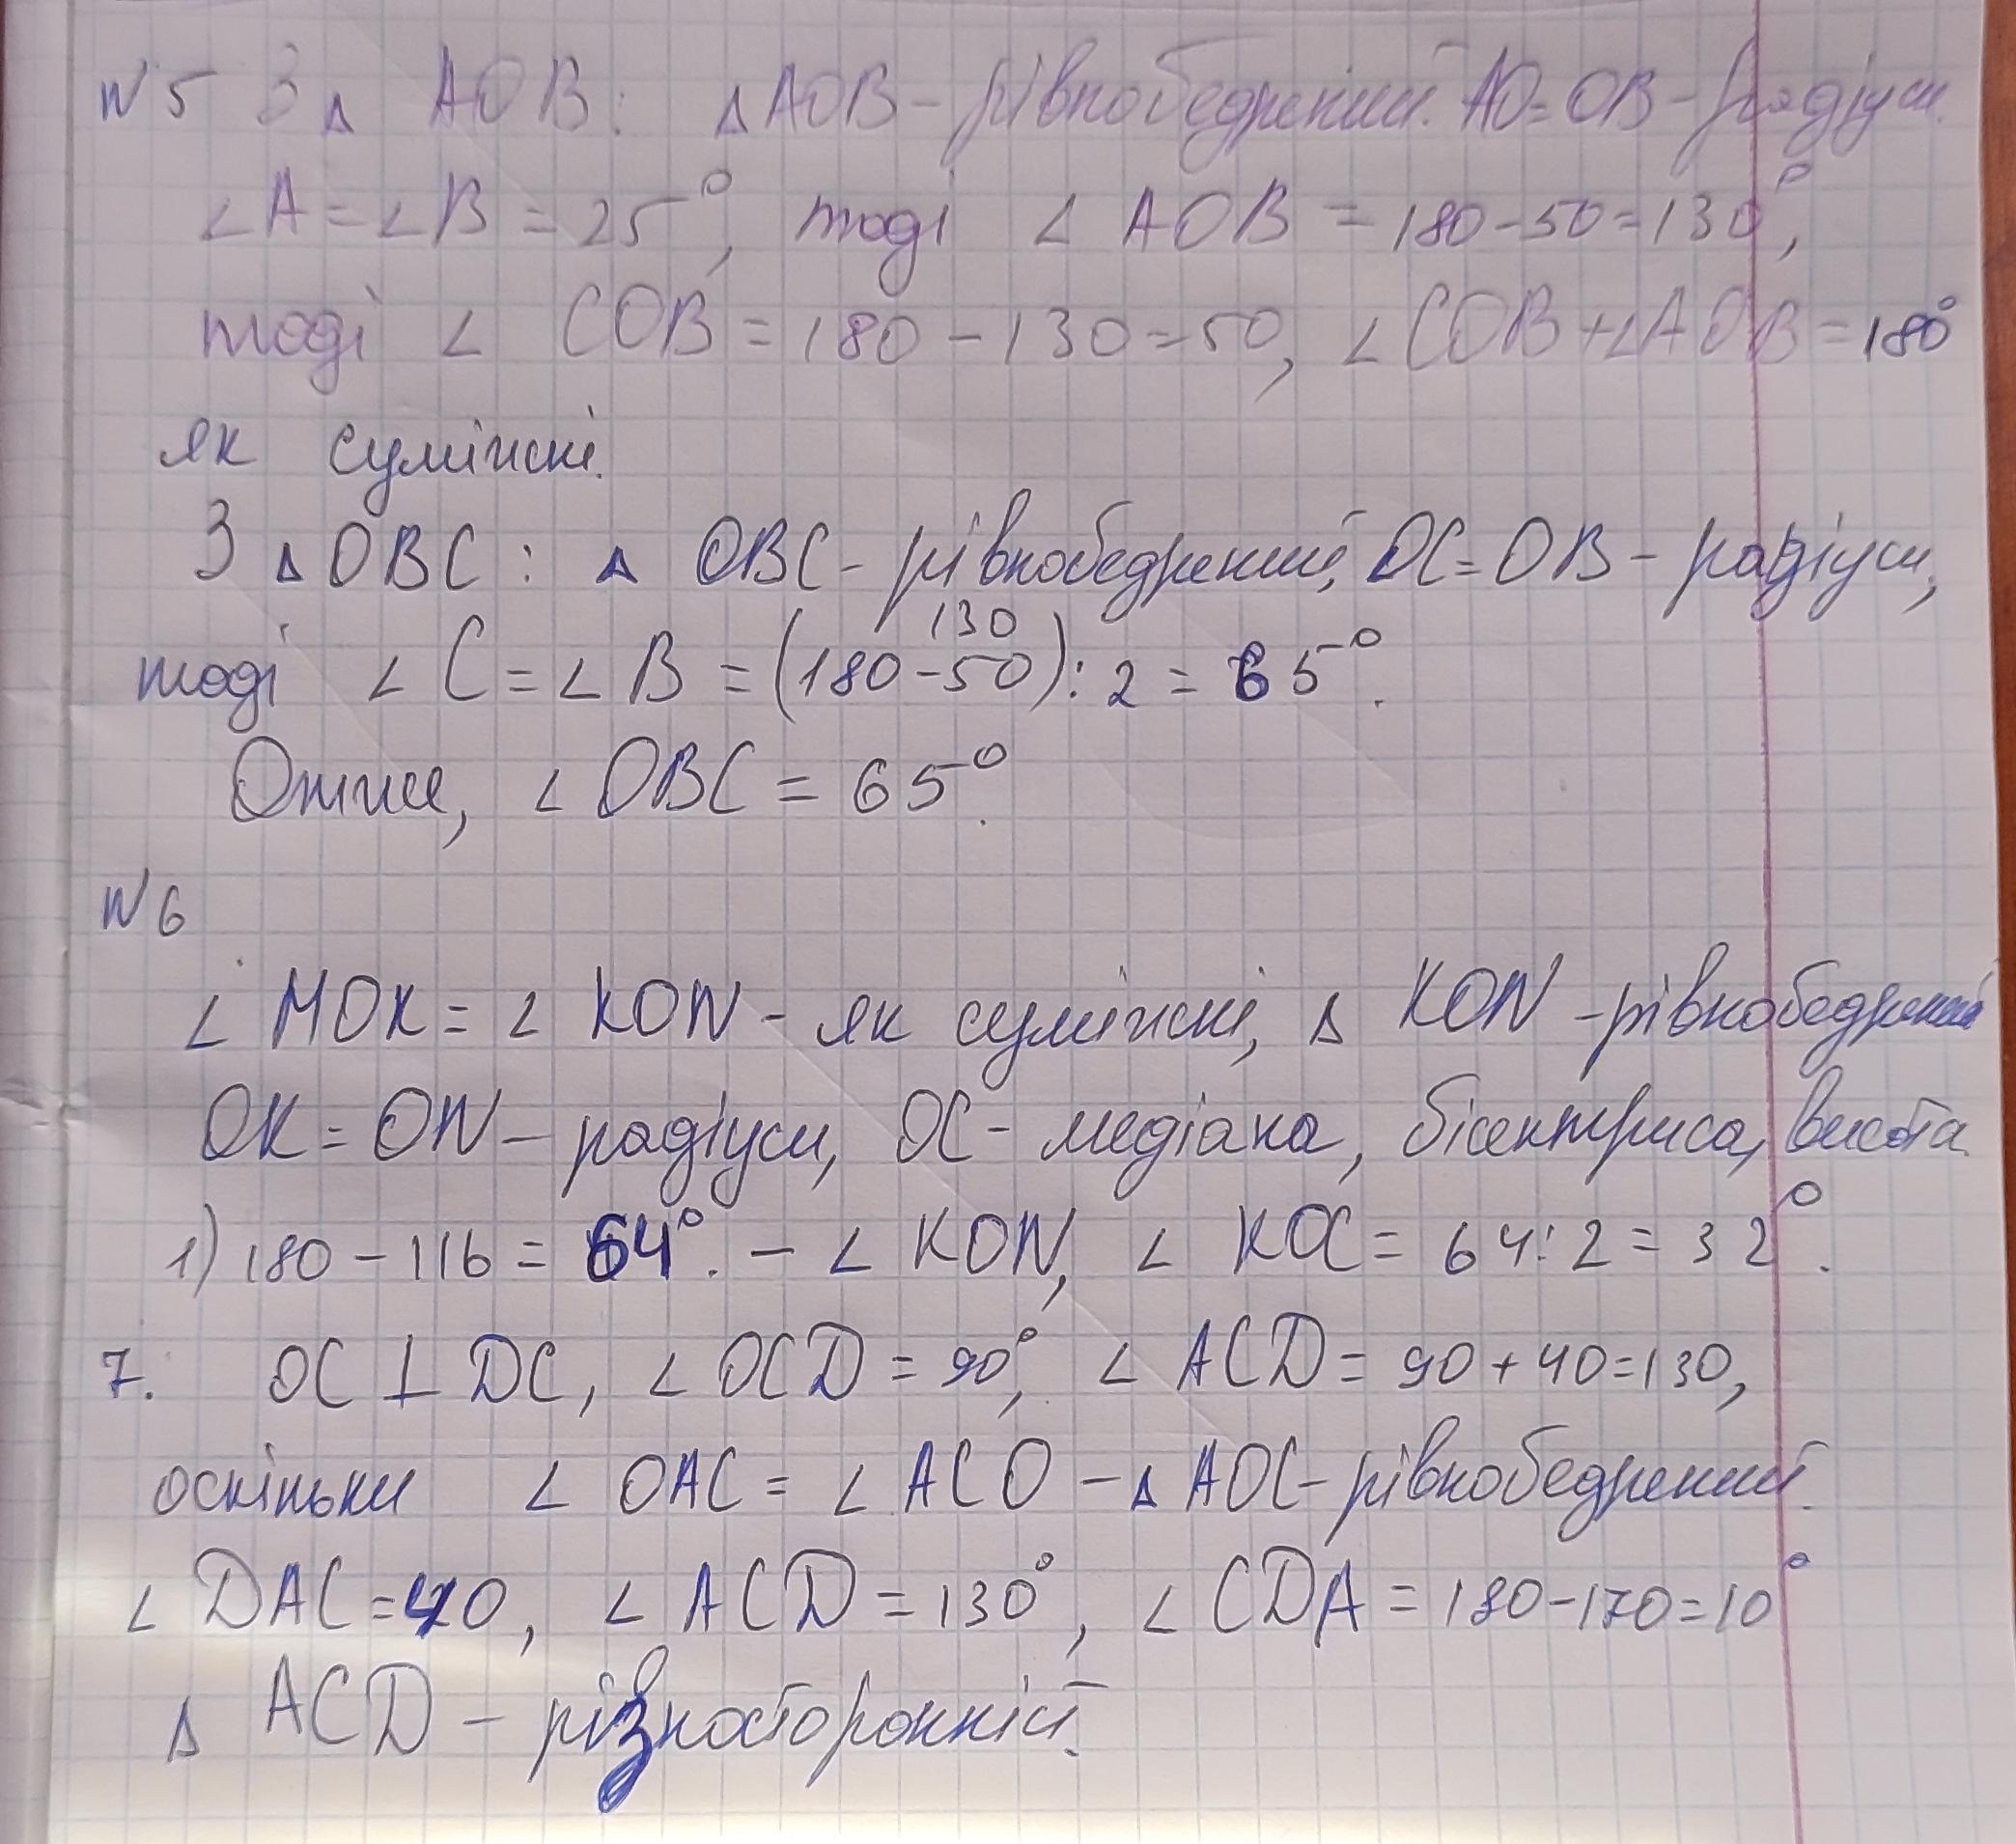 №5 З △ AOB: △AOB – рівнобедрений. AO=OB – радіуси.
∠A = ∠B = 25°, тоді ∠ AOB = 180-50=130°,
тоді ∠ COB = 180 – 130 = 50, ∠COB+∠AOB = 180°
як суміжні.
З △OBC : △ OBC - рівнобедрений, OC = OB – радіуси,
130
тоді ∠ C = ∠ B = (180-50):2 = 65°.
Отже, ∠ OBC = 65°.
№6
∠ MOK = ∠ KON - як суміжні, △ KON - рівнобедрений
OK = ON – радіуси, OC - медіана, бісектриса, висота.
1) 180 – 116 = 64°. – ∠ KON, ∠ KOC = 64:2 = 32°.
7. OC ⊥ DC, ∠ OCD = 90°, ∠ ACD = 90+40=130,
оскільки ∠ OAC = ∠ ACO – △ AOC - рівнобедрений.
∠ DAC = 40, ∠ ACD = 130°, ∠ CDA = 180-170=10°
△ ACD – різносторонній.